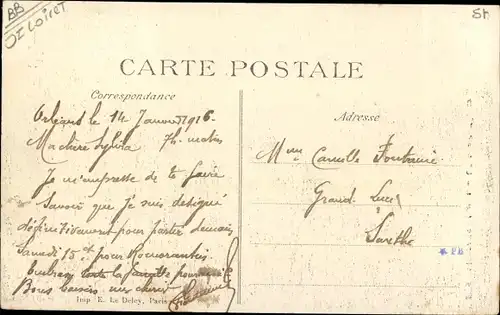 BB
OI Loiret
SH
CARTE POSTALE
Correspondance
Adresse
Orléans le 14 Janvier 1916
Ma chère Sylvia 7h. matin
Je m'empresse de te faire
savoir que je suis désigné
définitivement pour partir demain
Samedi 15 ct pour Romorantin
toute la famille pour
Bons baisers
Imp. E. Le Deley, Paris
Mme Camille
Grand Lucé
Sarthe